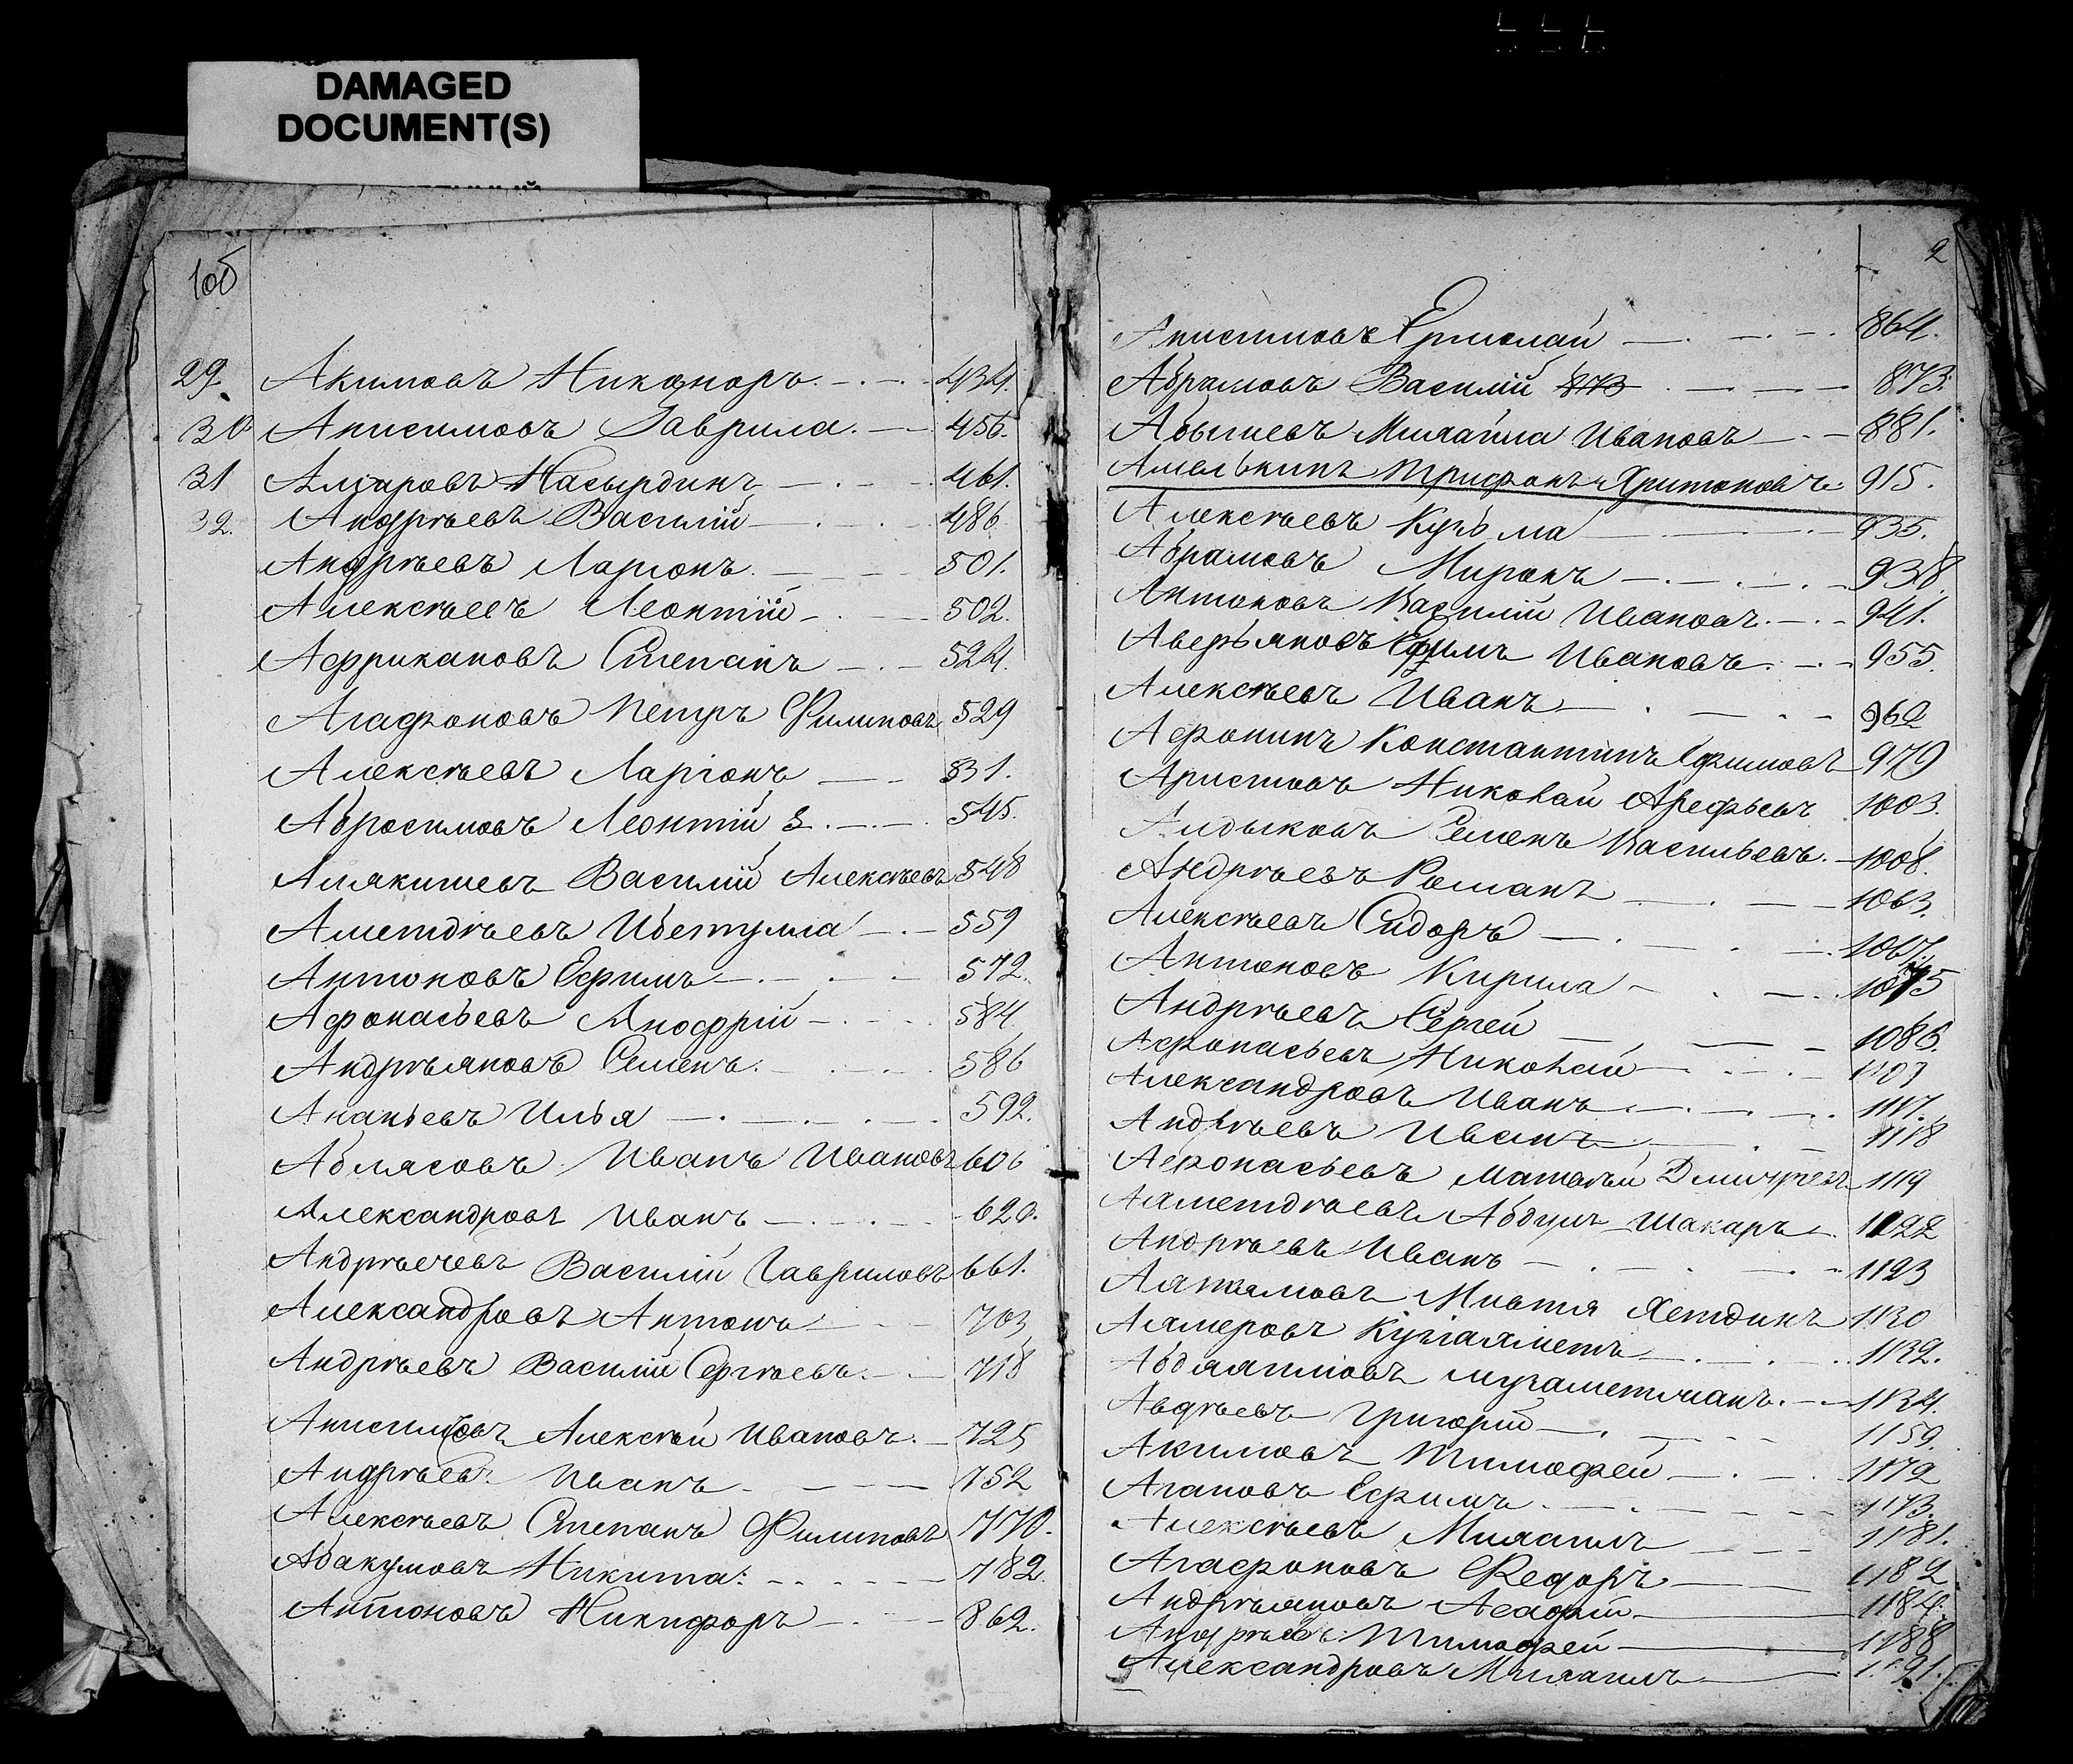 DAMAGED
DOCUMENT(S)
1об
29. Акимовъ Никаноръ. 434.
30 Анисимовъ Гаврила. 456.
31 Алкаровъ Насырдинъ 461.
32. Андрѣевъ Василій 486
Андрѣевъ Ларіонъ 501.
Алексѣевъ Леонтій 502.
Африкановъ Степанъ 524.
Агафоновъ Петръ Филиповъ 529
Алексѣевъ Ларіонъ 531.
Абросимовъ Леонтій 545.
Алякишевъ Василій Алексѣевъ 548
Аметдѣевъ Ибетулла 559
Антоновъ Ефимъ 572.
Афонасьевъ Анофрій 584.
Андрѣяновъ Семенъ. 586
Ананьевъ Илья 592.
Аблясовъ Иванъ Ивановъ 606
Александровъ Иванъ 620.
Андрѣечевъ Василій Гавриловъ 661.
Александровъ Антонъ 703
Андрѣевъ Василій Сергѣевъ. 718
Анисимовъ Алексѣй Ивановъ. 725
Андрѣевъ Иванъ 752
Алексѣевъ Степанъ Филиповъ 770.
Абакумовъ Никита: 782.
Антоновъ Никифоръ 862.
2
Анисимовъ Ермолай 864.
Абрамовъ Василій 873 873.
Абышевъ Михайла Ивановъ 881.
Амелькинъ Трифонъ Харитоновъ. 915.
Алексѣевъ Кузьма 935.
Абрамовъ Миронъ 938.
Антоновъ Василій Ивановъ. 941.
Аверьяновъ Ефимъ Ивановъ. 955.
Алексѣевъ Иванъ 962
Афонинъ Константинъ Ефимовъ 979
Аристовъ Николай Арефьевъ 1003.
Алдыковъ Семенъ Васильевъ. 1008.
Андрѣевъ Романъ 1063.
Алексѣевъ Сидоръ 1067.
Антоновъ Кирила 1075
Андрѣевъ Сергей 1086.
Афонасьевъ Николай 1107
Александровъ Иванъ 1117.
Андрѣевъ Иванъ 1118
Афонасьевъ Матвѣй Дмитріевъ 1119
Ахметдѣевъ Абдулъ Шакаръ 1122
Андрѣевъ Иванъ 1123
Хетдинъ 1130
Алмеровъ 1132.
1134.
Авдѣевъ Григорій 1159.
Акимовъ Тимофей 1172
Агаповъ Ефимъ. 1173.
Алексѣевъ Михаилъ 1181.
Агафоновъ Федоръ 1182
Андрѣяновъ 1184.
Андрѣевъ Тимофей 1188
Александровъ Михаилъ 1191.